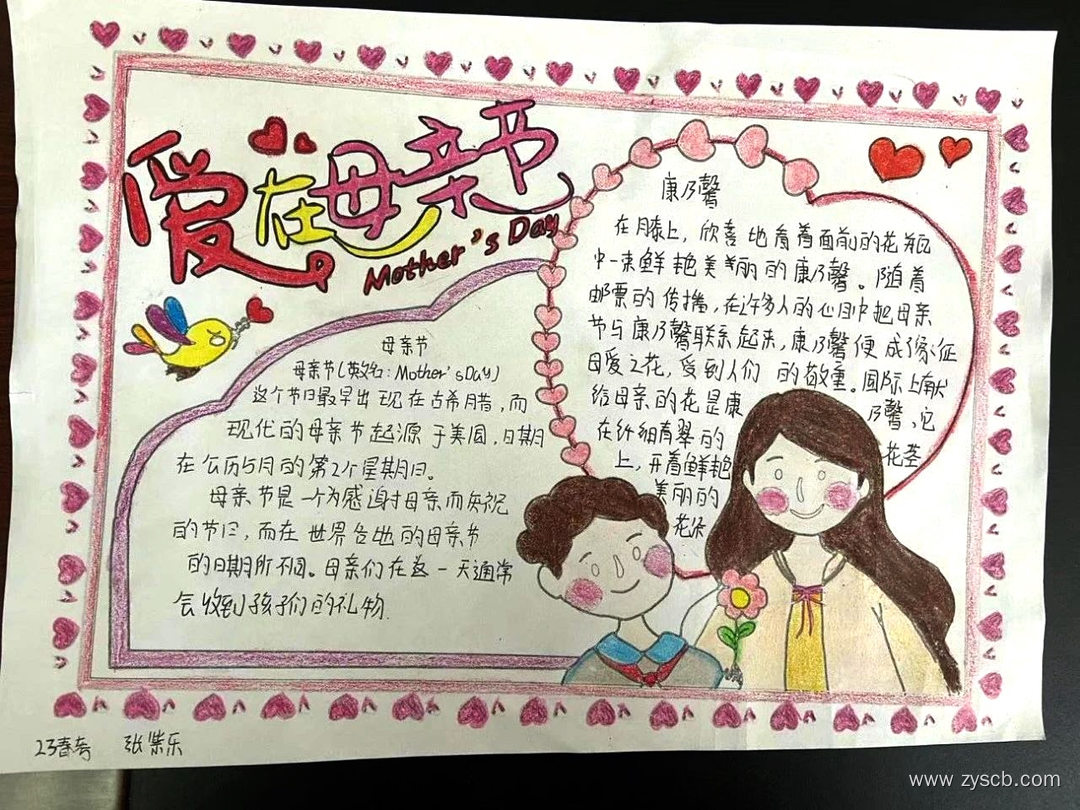 爱在母亲节
Mother's Day
母亲节
母亲节(英文名:Mother'sDay)
这个节日最早出现在古希腊,而
现代的母亲节起源于美国,日期
在公历5月的第2个星期日。
母亲节是一个为感谢母亲而庆祝
的节日,而在世界各地的母亲节
的日期所不同。母亲们在这一天通常
会收到孩子们的礼物.
康乃馨
在膝上,欣喜地看着面前的花瓶
中一束鲜艳美丽的康乃馨。随着
邮票的传播,在许多人的心目中把母亲
节与康乃馨联系起来,康乃馨便成了象征
母爱之花,受到人们的敬重。国际上献
给母亲的花是康乃馨、它
在纤细青翠的花茎
上,开着鲜艳
美丽的
花朵
张紫乐
www.zyscb.com